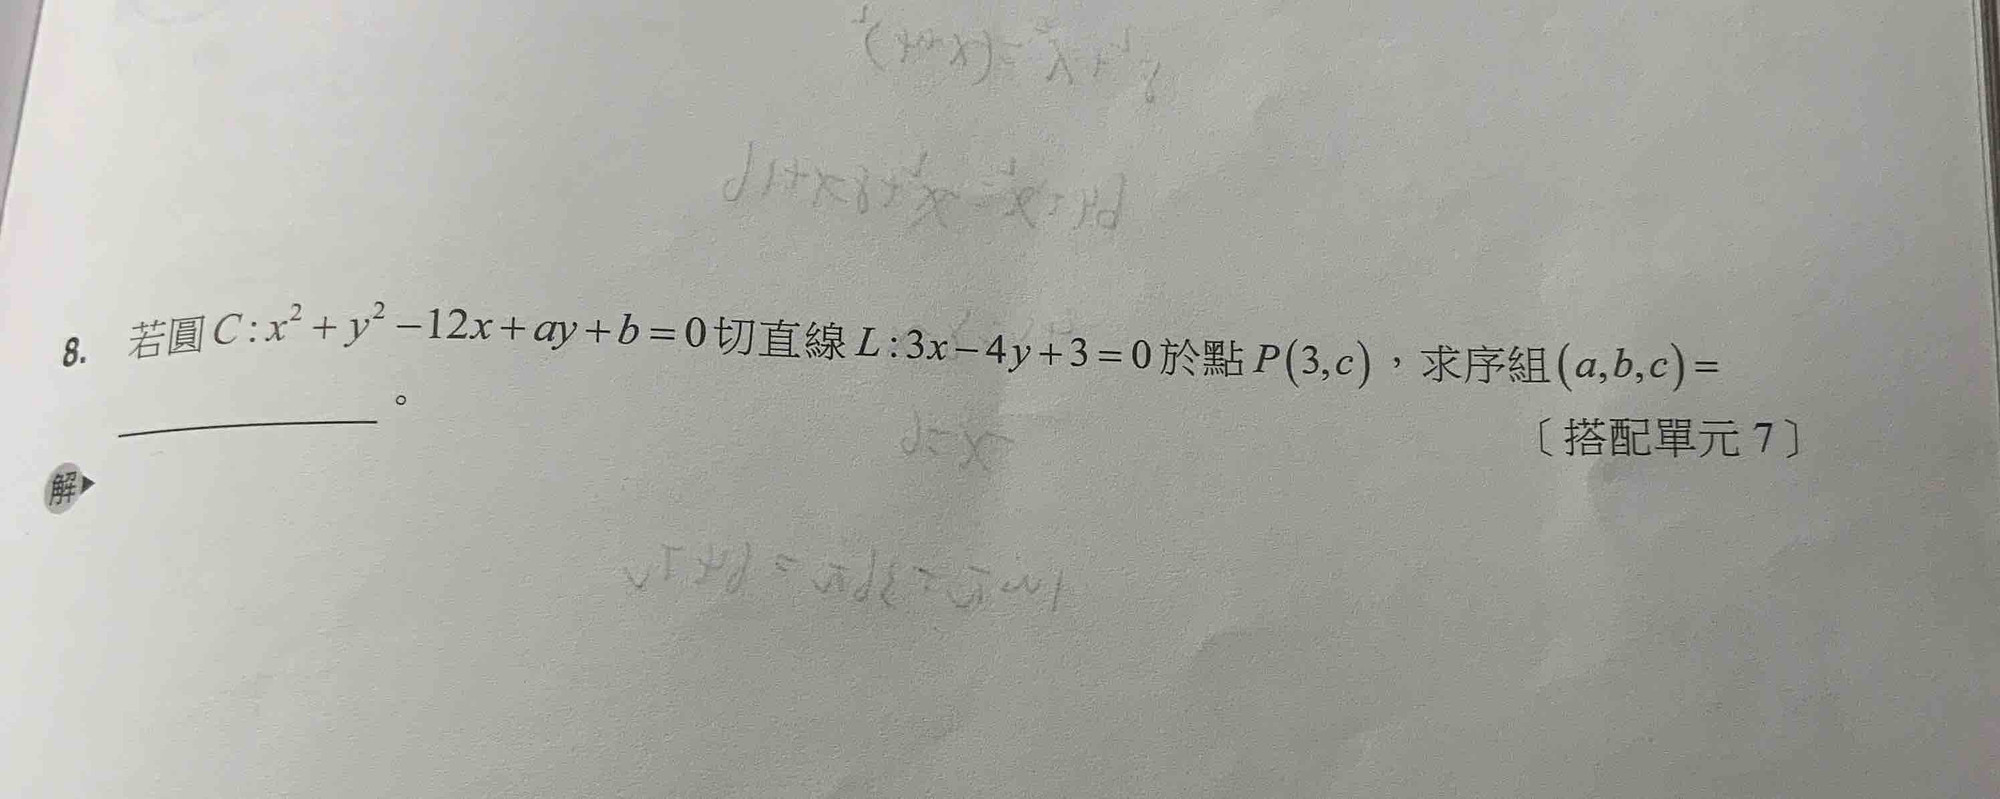 8. 若圓C:x²+y²−12x+ay+b=0切直線L:3x−4y+3=0於點P(3,c),求序組(a,b,c)=
。
〔搭配單元7〕
解